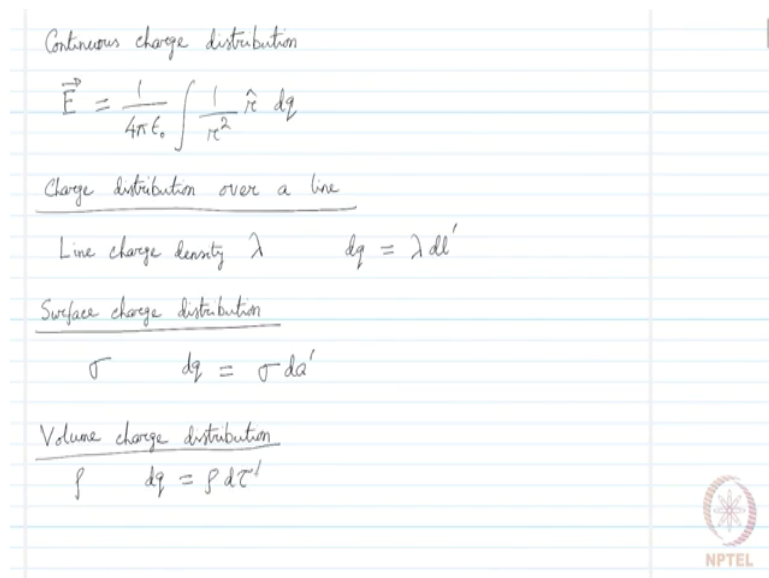 Continuous charge distribution
E⃗ = 1/4πε₀ ∫ 1/r² r̂ dq
Charge distribution over a line
Line charge density λ dq = λ dl′
Surface charge distribution
σ dq = σ da′
Volume charge distribution
ρ dq = ρ dτ′
NPTEL